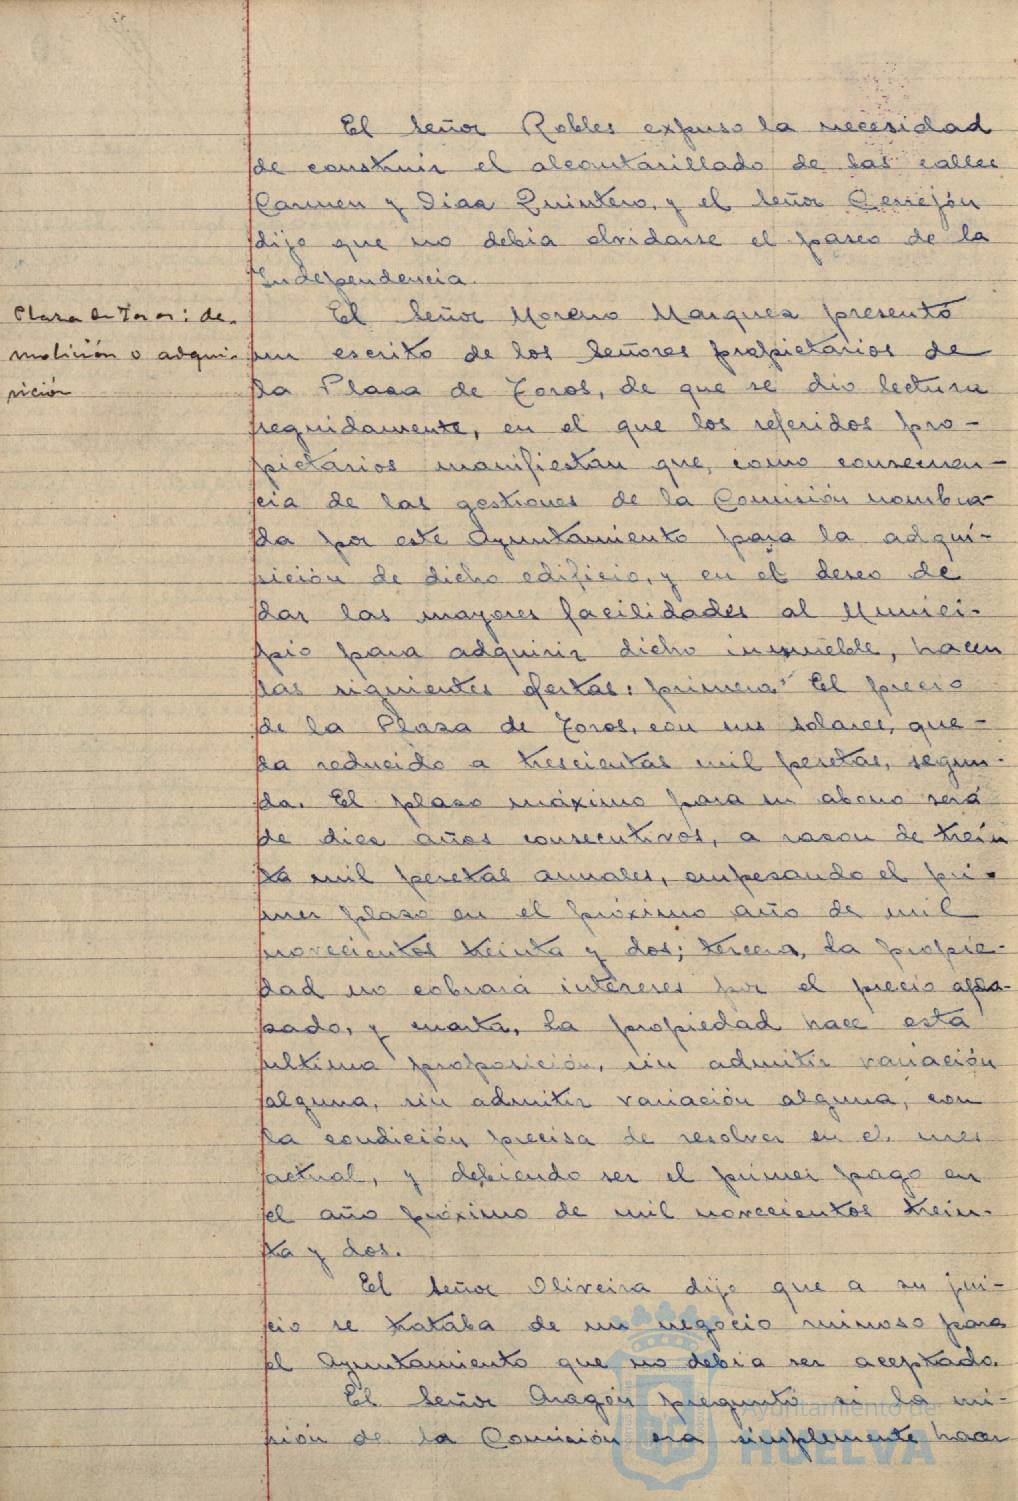 El Señor Robles expuso la necesidad
de construir el alcantarillado de las calles
Carmen y Diaz Quintero, y el Señor Cerrejón
dijo que no debia olvidarse el paseo de la
Independencia.
Plaza de Toros: de-
molición o adqui-
sición
El Señor Moreno Marquez presentó
un escrito de los Señores propietarios de
la Plaza de Toros, de que se dio lectura
seguidamente, en el que los referidos pro-
pietarios manifiestan que, como consecuen-
cia de las gestiones de la Comisión nombra-
da por este Ayuntamiento para la adqui-
sición de dicho edificio, y en el deseo de
dar las mayores facilidades al Munici-
pio para adquirir dicho inmueble, hacen
las siguientes ofertas: primera: El precio
de la Plaza de Toros, con sus solares, que-
da reducido a trescientas mil pesetas, segun-
da. El plazo máximo para su abono será
de diez años consecutivos, a razon de trein
ta mil pesetas anuales, empezando el pri-
mer plazo en el próximo año de mil
novecientos treinta y dos; tercera, La propie-
dad no cobrará intereses por el precio apla-
zado, y cuarta, La propiedad hace esta
ultima proposición, sin admitir variación
alguna, sin admitir variación alguna, con
la condición precisa de resolver en el mes
actual, y debiendo ser el primer pago en
el año próximo de mil novecientos trein-
ta y dos.
El Señor Oliveira dijo que a su jui-
cio se trataba de un negocio ruinoso para
el Ayuntamiento que no debia ser aceptado.
El Señor Aragón preguntó si la mi-
sión de la Comisión era simplemente hacer
Ayuntamiento de
HUELVA